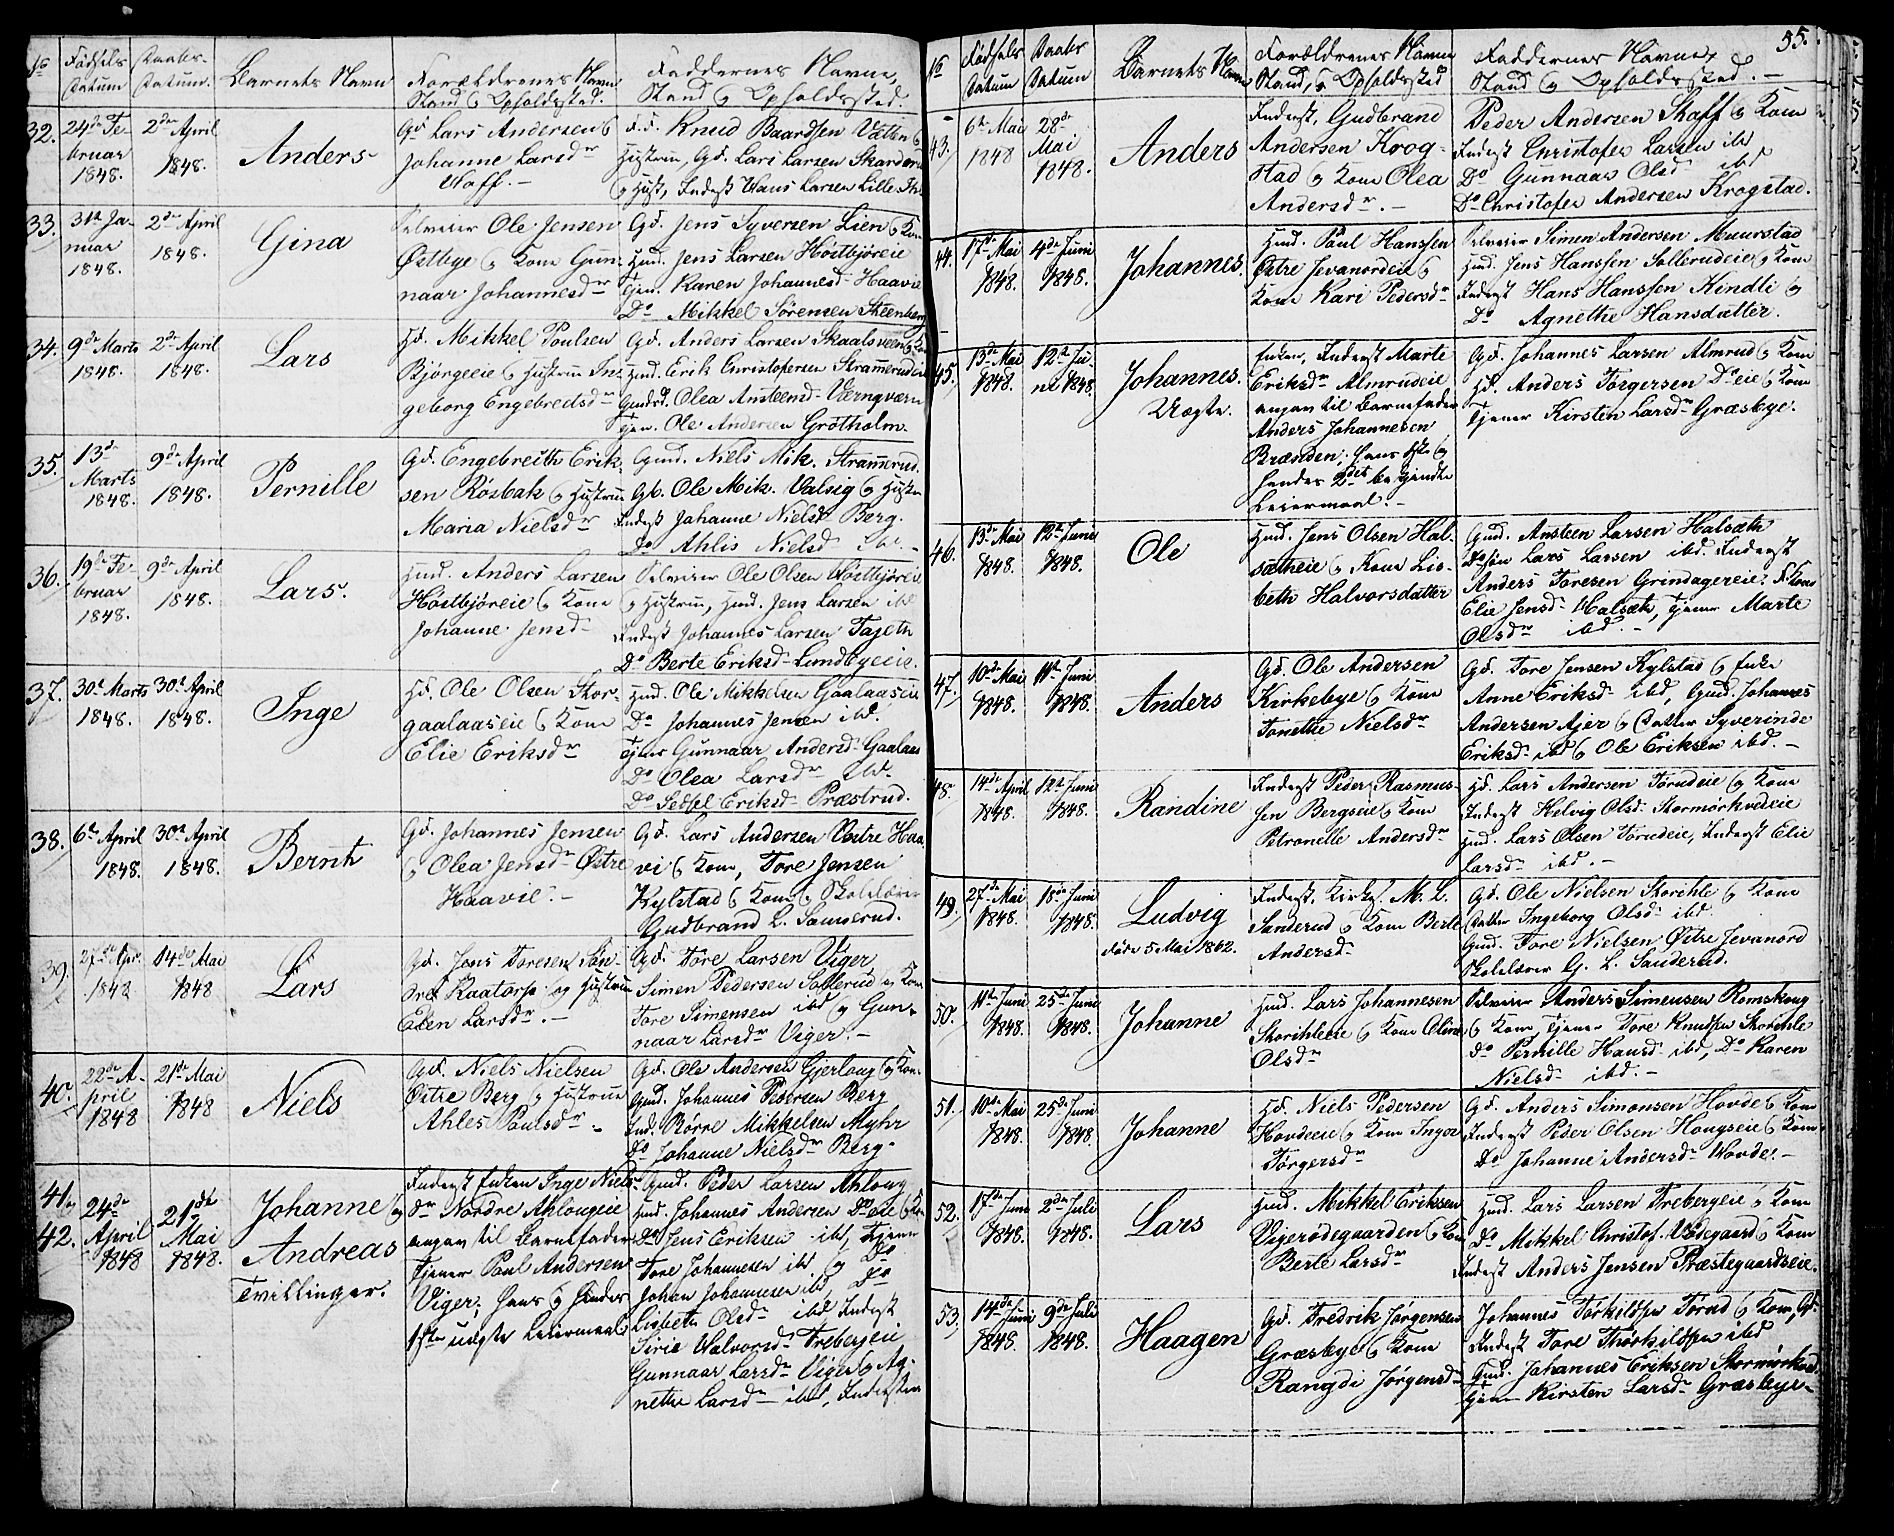 No
Fødsels
Datum
Daabs-
Datum.
Barnets Navn
Forældrenes Navn
Stand og Opholdssted.
Faddernes Navne,
Stand og Opholdssted.
32.
24de Fe-
bruar
1848.
2den April
1848.
Anders
Gd. Lars Andersen og
Johanne Larsdr
Hoff.
Knud Baardsen Vætten og
Hustru, Gd. Lars Larsen Skarderud
og Hust, Inderst Hans Larsen Lille
33.
31te Ja-
nuar
1848.
2den April
1848.
Gina
Selveier Ole Jensen
Østbye og Kone Gun-
naar Johannesdr
Gd. Jens Syversen Lien og Kone
Hmd. Jens Larsen Høstbjøreie
Tjen. Karen Johannesd. Haavie
Do Mikkel Sørensen Steenberg
34.
9de Marts
1848.
2den April
1848.
Lars
Hd. Mikkel Poulsen
Bjørgeeie og Hustrue In-
geborg Engebredsdr
Gd. Anders Larsen Skaalsveen og Kone
Hmd. Erik Christofersen Strammerud
Gmdsd. Olea Ansteensd. Værnqværn
Tjen. Ole Andersen Grøtholm
35.
13de
Marts
1848.
9de April
1848.
Pernille
Gd. Engebreth Erik-
sen Røsbak og Hustrue
Maria Nielsdr
Gmd. Niels Mik. Strammerud
Gb. Ole Mik. Valsig og Hustru
Inderst Johanne Nielsd. Berg.
Do Ahlis Nielsd. ibd.
36.
19de Fe-
bruar
1848.
9de April
1848.
Lars.
Hmd. Anders Larsen
Høstbjøreie og Kone
Johanne Jensd.
Selveier Ole Olsen Høstbjøreie
og Hustrue, Hmd. Jens Larsen ibd
Inderst Johannes Larsen Tajeth
Do Berte Eriksd. Lundbyeeie.
37.
30te Marts
1848.
30te April
1848.
Inge
Hd. Ole Olsen Stor-
gaalaaseie og Kone
Elie Eriksdr
Hmd. Ole Mikkelsen Gaalaaseie
Do Johannes Jensen ibd.
Tjener Gunnaar Andersd. Gaalaas
Do Olea Larsdr ibd.
Do Sedsel Eriksd. Præstrud.
38.
6te April
1848.
30te April
1848.
Bernt
Gd. Johannes Jensen
og Olea Jensd. Østre
Haavie.
Gd. Lars Andersen Vestre Haa-
vi og Kone, Tore Jensen
Kylstad og Kone og Skolelærer
Gudbrand L. Sannerud.
39.
27de Apr.
1848
14de Mai
1848
Lars
Gd. Jens Toresen Søn-
dre Kaatorp og Hustrue
Elen Larsdr.
Gd. Tore Larsen Viger
Simen Pedersen Sollerud og Kone
Tore Simensen ibd og Gun-
naar Larsdr Viger.
40.
22de A-
pril
1848
21de Mai
1848
Niels
Gd. Niels Nielsen
Østre Berg og Hustrue
Ahles Poulsdr
Gd. Ole Andersen Gjerlaug og Kone
Gmd. Johannes Pedersen Berg
Ind. Børre Mikkelsen Myhr
Do Johanne Nielsdr Berg
41.
42.
24de
April
1848
21de
Mai
1848.
Johanne og
Andreas
Tvillinger.
Inderst Enken Inge Niels-
dr Nordre Ahlougeie
angav til Barnefader
Tjener Paul Andersen
Viger, hans og hendes
1ste uægte Leiermaal
Gmd. Peder Larsen Ahloug
Hmd. Johannes Andersen Do eie og Kone
Do Jens Eriksen ibd, Tjener
Tore Johannesen ibd og Do
Johan Johannesen ibd, Do
Lisbeth Olsd. ibd Inderst
Sirie Halvorsd. Trebergeie
Gunnaar Larsdr Viger og Ag-
nethe Larsd. ibd, Inderster
55.
No
Fødsels
Datum
Daabs
Datum
Barnets Navn
Forældrenes Navne
Stand, og Opholdssted
Faddernes Navne,
Stand og Opholdssted.
43.
6te Mai
1848
28de
Mai
1848.
Anders
Inderst, Gudbrand
Andersen Krog-
stad og Kone Olea
Andersdr.
Peder Andersen Skaff og Kone
Inderst Christofer Larsen ibd
Do Gunnaar Olsd. ibd
Do Christofer Andersen Krogstad.
44.
17de Mai
1848.
4de Juni
1848.
Johannes.
Hmd. Paul Hanssen
Østre Jevanordeie og
Kone Kari Pedersdr
Selveier Simen Andersen Muurstad
Hmd. Jens Hanssen Sollerudeie og Kone
Inderst Hans Hanssen Kindli og
Do Agnethe Hansdatter.
45.
13de Mai
1848.
12te Ju-
ni 1848.
Johannes.
Uægte.
Enken, Inderst Marte
Eriksdr Almrudeie
angav til Barnefader
Anders Johannesen
Brænden; hans og
hendes 2det begyndte
Leiermaal.
Gd. Johannes Larsen Almrud og Kone
Hd. Anders Torgersen Do eie og Kone
Tjener Kirsten Larsdr Græsbye.
46.
13de Mai
1848.
12te Juni
1848.
Ole
Hmd. Jens Olsen Hal-
sætheie og Kone Lis-
beth Halvorsdatter
Gmd. Ansteen Larsen Halsæth
Lars Larsen ibd. Inderst
Anders Toresen Grindagereie,
Elie Jensd. Halsæth, Tjener Marte
Olsdr ibd.
47.
10de Mai
1848.
11te Juni
1848.
Anders
Gd. Ole Andersen
Kirkebye og Kone
Tonethe Nielsdr
Gd. Tore Jensen Kylstad og Enke
Anne Eriksd. ibd, Gmd. Johannes
Andersen Ajer og Datter Syverinde
Eriksd. ibd og Ole Eriksen ibd.
48.
14de April
1848.
12te Juni
1848.
Randine
Inderst Peder Rasmus-
sen Bergseie og Kone
Petronelle Andersdr
Hd. Lars Andersen Torudeie og Kone
Inderst Helvig Olsd. Stormørkvedeie
Hmd. Lars Olsen Torudeie, Inderst Elie
Larsdr ibd.
49.
27de Mai
1848.
18de Juni
1848.
Ludvig
døde 5 Mai 1862.
Inderst, Kirkes. M. L.
Sanderud og Kone Berte
Andersd.
Gd. Ole Nielsen Skorihle og Kone
Datter Ingeborg Olsd. ibd.
Gmd. Tore Nielsen Østre Jevanord
Skolelærer G. L. Sanderud.
50.
11te Juni
1848.
25de Juni
1848.
Johanne
Hmd. Lars Johannesen
Skorihleeie og Kone Oline
Olsdr
Selveier Anders Simensen Romskoug
og Kone, Tjener Tore Knudsen Skorihle
Do Pernille Hansd. ibd, Do Karen
Nielsd. ibd.
51.
10de Mai
1848.
25de Juni
1848.
Johanne
Hd. Niels Pedersen
Hovdeeie og Kone Inger
Torgersdr
Gd. Anders Simonsen Hovde og Kone
Inderst Peder Olsen Hougseie og Kone
Do Johanne Andersd. Hovde.
52.
17de Juni
1848.
2den Juli
1848.
Lars
Hmd. Mikkel Eriksen
Vigerødegaarden og Kone
Berte Larsdr
Hmd. Lars Larsen Trebergeie og Kone
Do Mikkel Christof. Ødegaard og Kone
Inderst Anders Jensen Præstegaardseie.
53.
14de
Juni
1848.
9de Juli
1848.
Haagen
Gd. Fredrik Jørgensen
Græsbye og Kone
Rangdi Jørgensdr
Johannes Torkildsen Torud og Kone, Gd.
Inderst Tore Thorkildsen ibd
Gmd. Johannes Eriksen Stormørkved
Tjener Kirsten Larsdr Græsbye